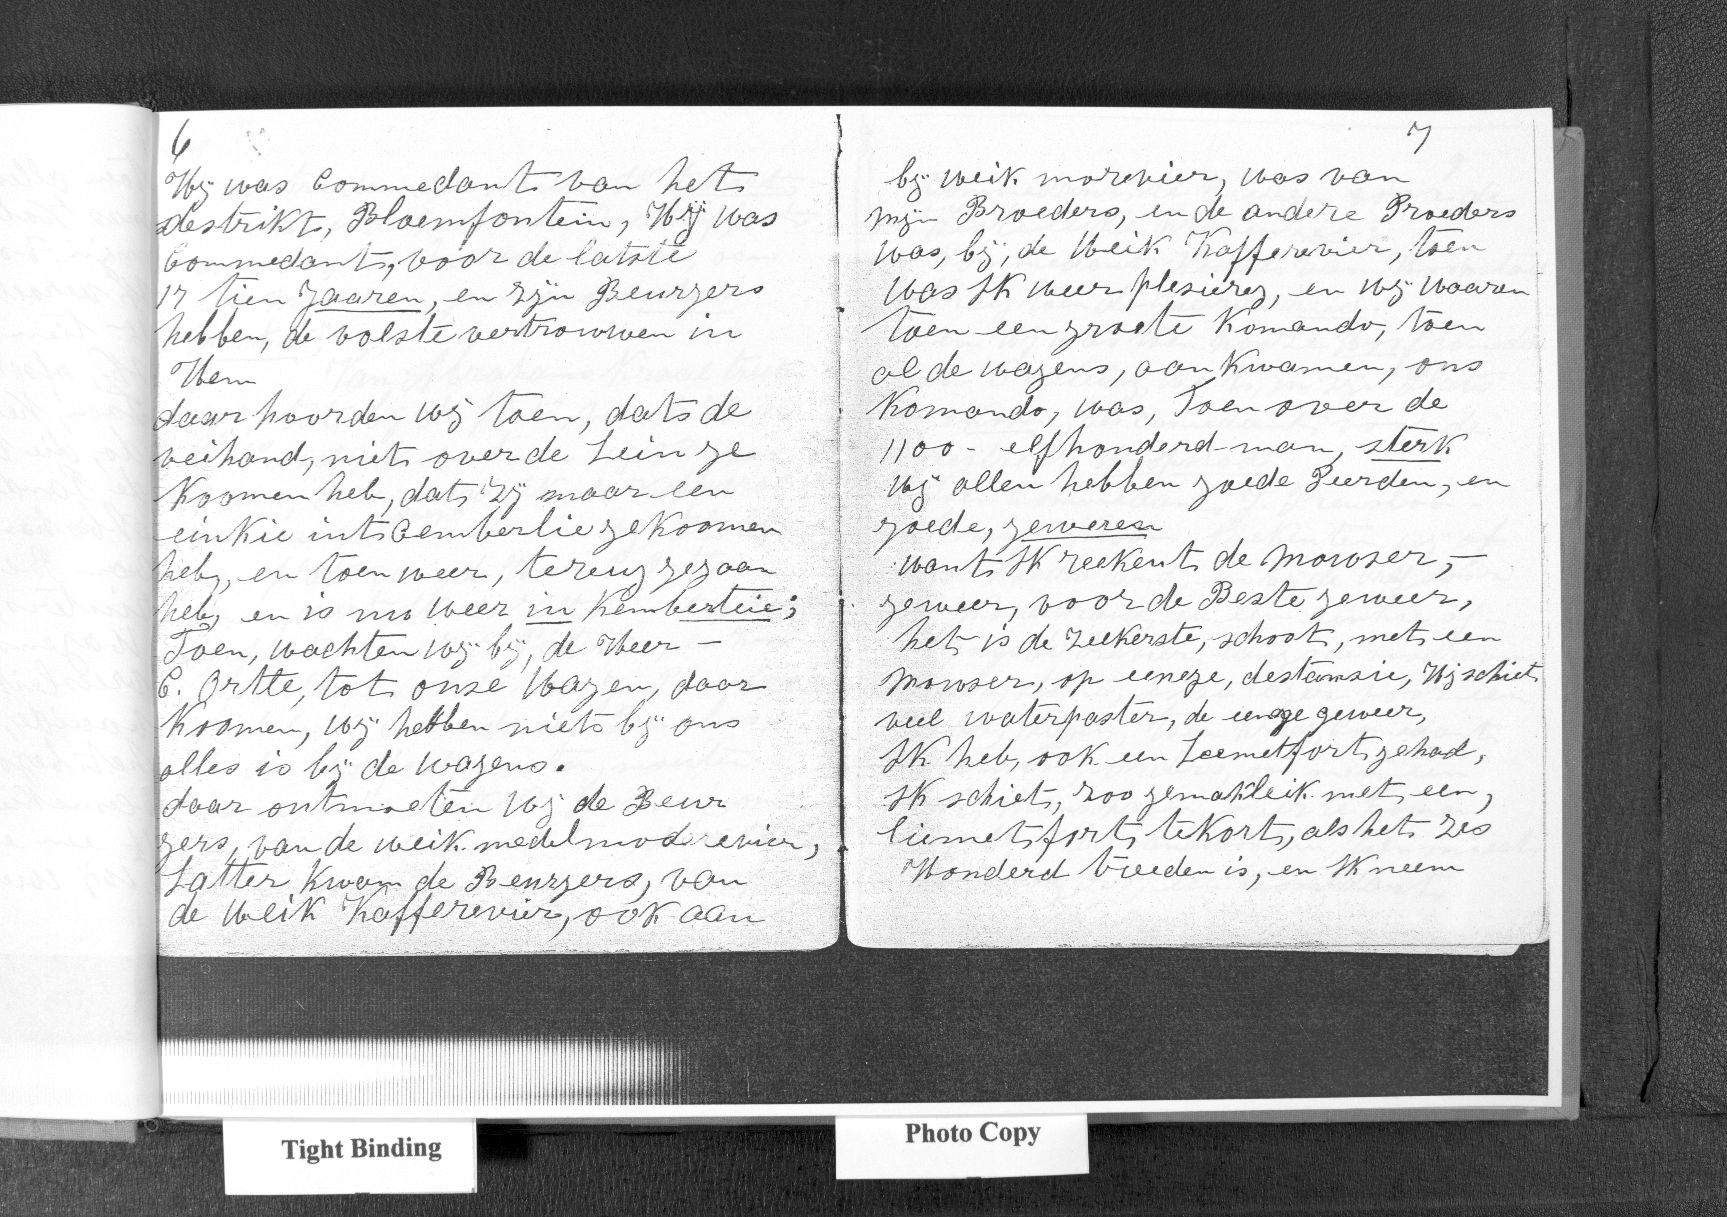 6
Hij was Commedant van het
destrikt, Bloemfontein, Hij was
Commedant, voor de latste
17 tien Jaaren, en zijn Beurgers
hebben, de volste vertrouwen in
Hem
daar hoorden wij toen, dat de
veihand, niet over de Lein ge
Koomen heb, dat zij maar een
einkie int Cemberlie gekoomen
heb, en toen weer, tereug gegaan
heb, en is nu weer in Kemberteie;
Toen, wachten wij bij, de Heer –
C. Ortte, tot onse Wagen, daar
Koomen, wij hebben niets bij ons
alles is bij de wagens.
daar ontmoeten Wij de Beur
gers, van de weik medelmodrevier,
Latter Kwam de Beurgers, van
de Weik Kafferevier, ook aan
7
bij weik morevier, was van
mijn Broeders, en de andere Broeders
was, bij, de Weik Kafferevier, toen
was Ik weer plesiereg, en wij waaren
toen een groete Komando, toen
al de wagens, aan Kwamen, ons
Komando, was, Toen over de
1100 - elfhonderd man, sterk
wij allen hebben goede Peerden, en
goede, geweren
want Ik reekent de Mowser, –
geweer, voor de Beste geweer,
het is de zeekerste, schoot, met een
Mowser, op eenege, destansie, Hij schiet
veel waterpaster, de eenege geweer,
Ik heb, ook een Leemetfort gehad,
Ik schiet, zoo gemakleik met een,
liemetfort, te Kort, als het zes
Honderd treeden is, en Ik neem
Tight Binding
Photo Copy